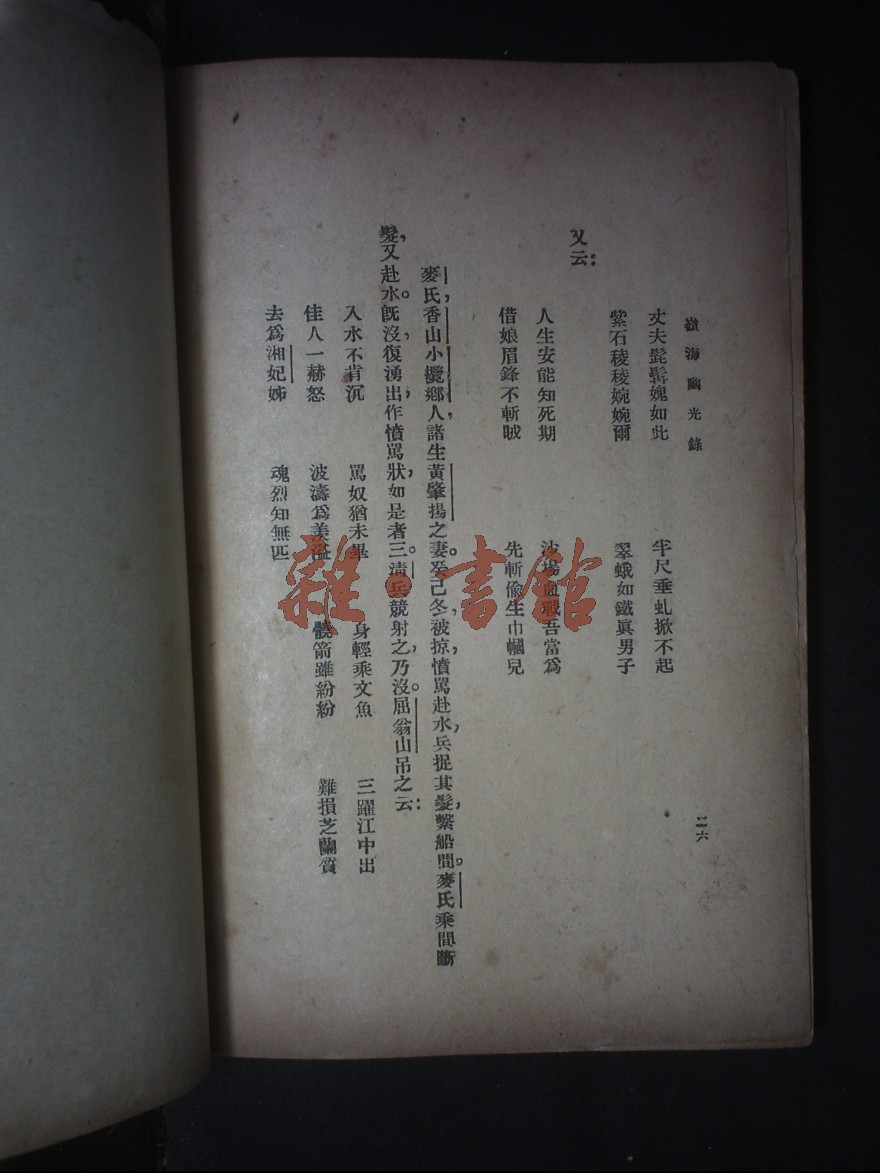 嶺海幽光錄
二六
丈夫髭髯媿如此 半尺垂虬掀不起
紫石稜稜婉婉爾 翠蛾如鐵眞男子
又云：
人生安能知死期 沙場血戰吾當為
借娘眉鋒不斬賊 先斬偷生巾幗兒
麥氏，香山小欖鄉人，諸生黃肇揚之妻。癸巳冬，被掠，憤罵赴水，兵捉其髮，繫船間。麥氏乘間斷
髮，又赴水。旣沒，復湧出，作憤罵狀，如是者三。清兵競射之，乃沒。屈翁山吊之云：
入水不肯沉 罵奴猶未畢 身輕乘文魚 三躍江中出
佳人一赫怒 波濤爲羙溢 髐箭雖紛紛 難損芝蘭質
去爲湘妃姊 魂烈知無匹
雜·書館